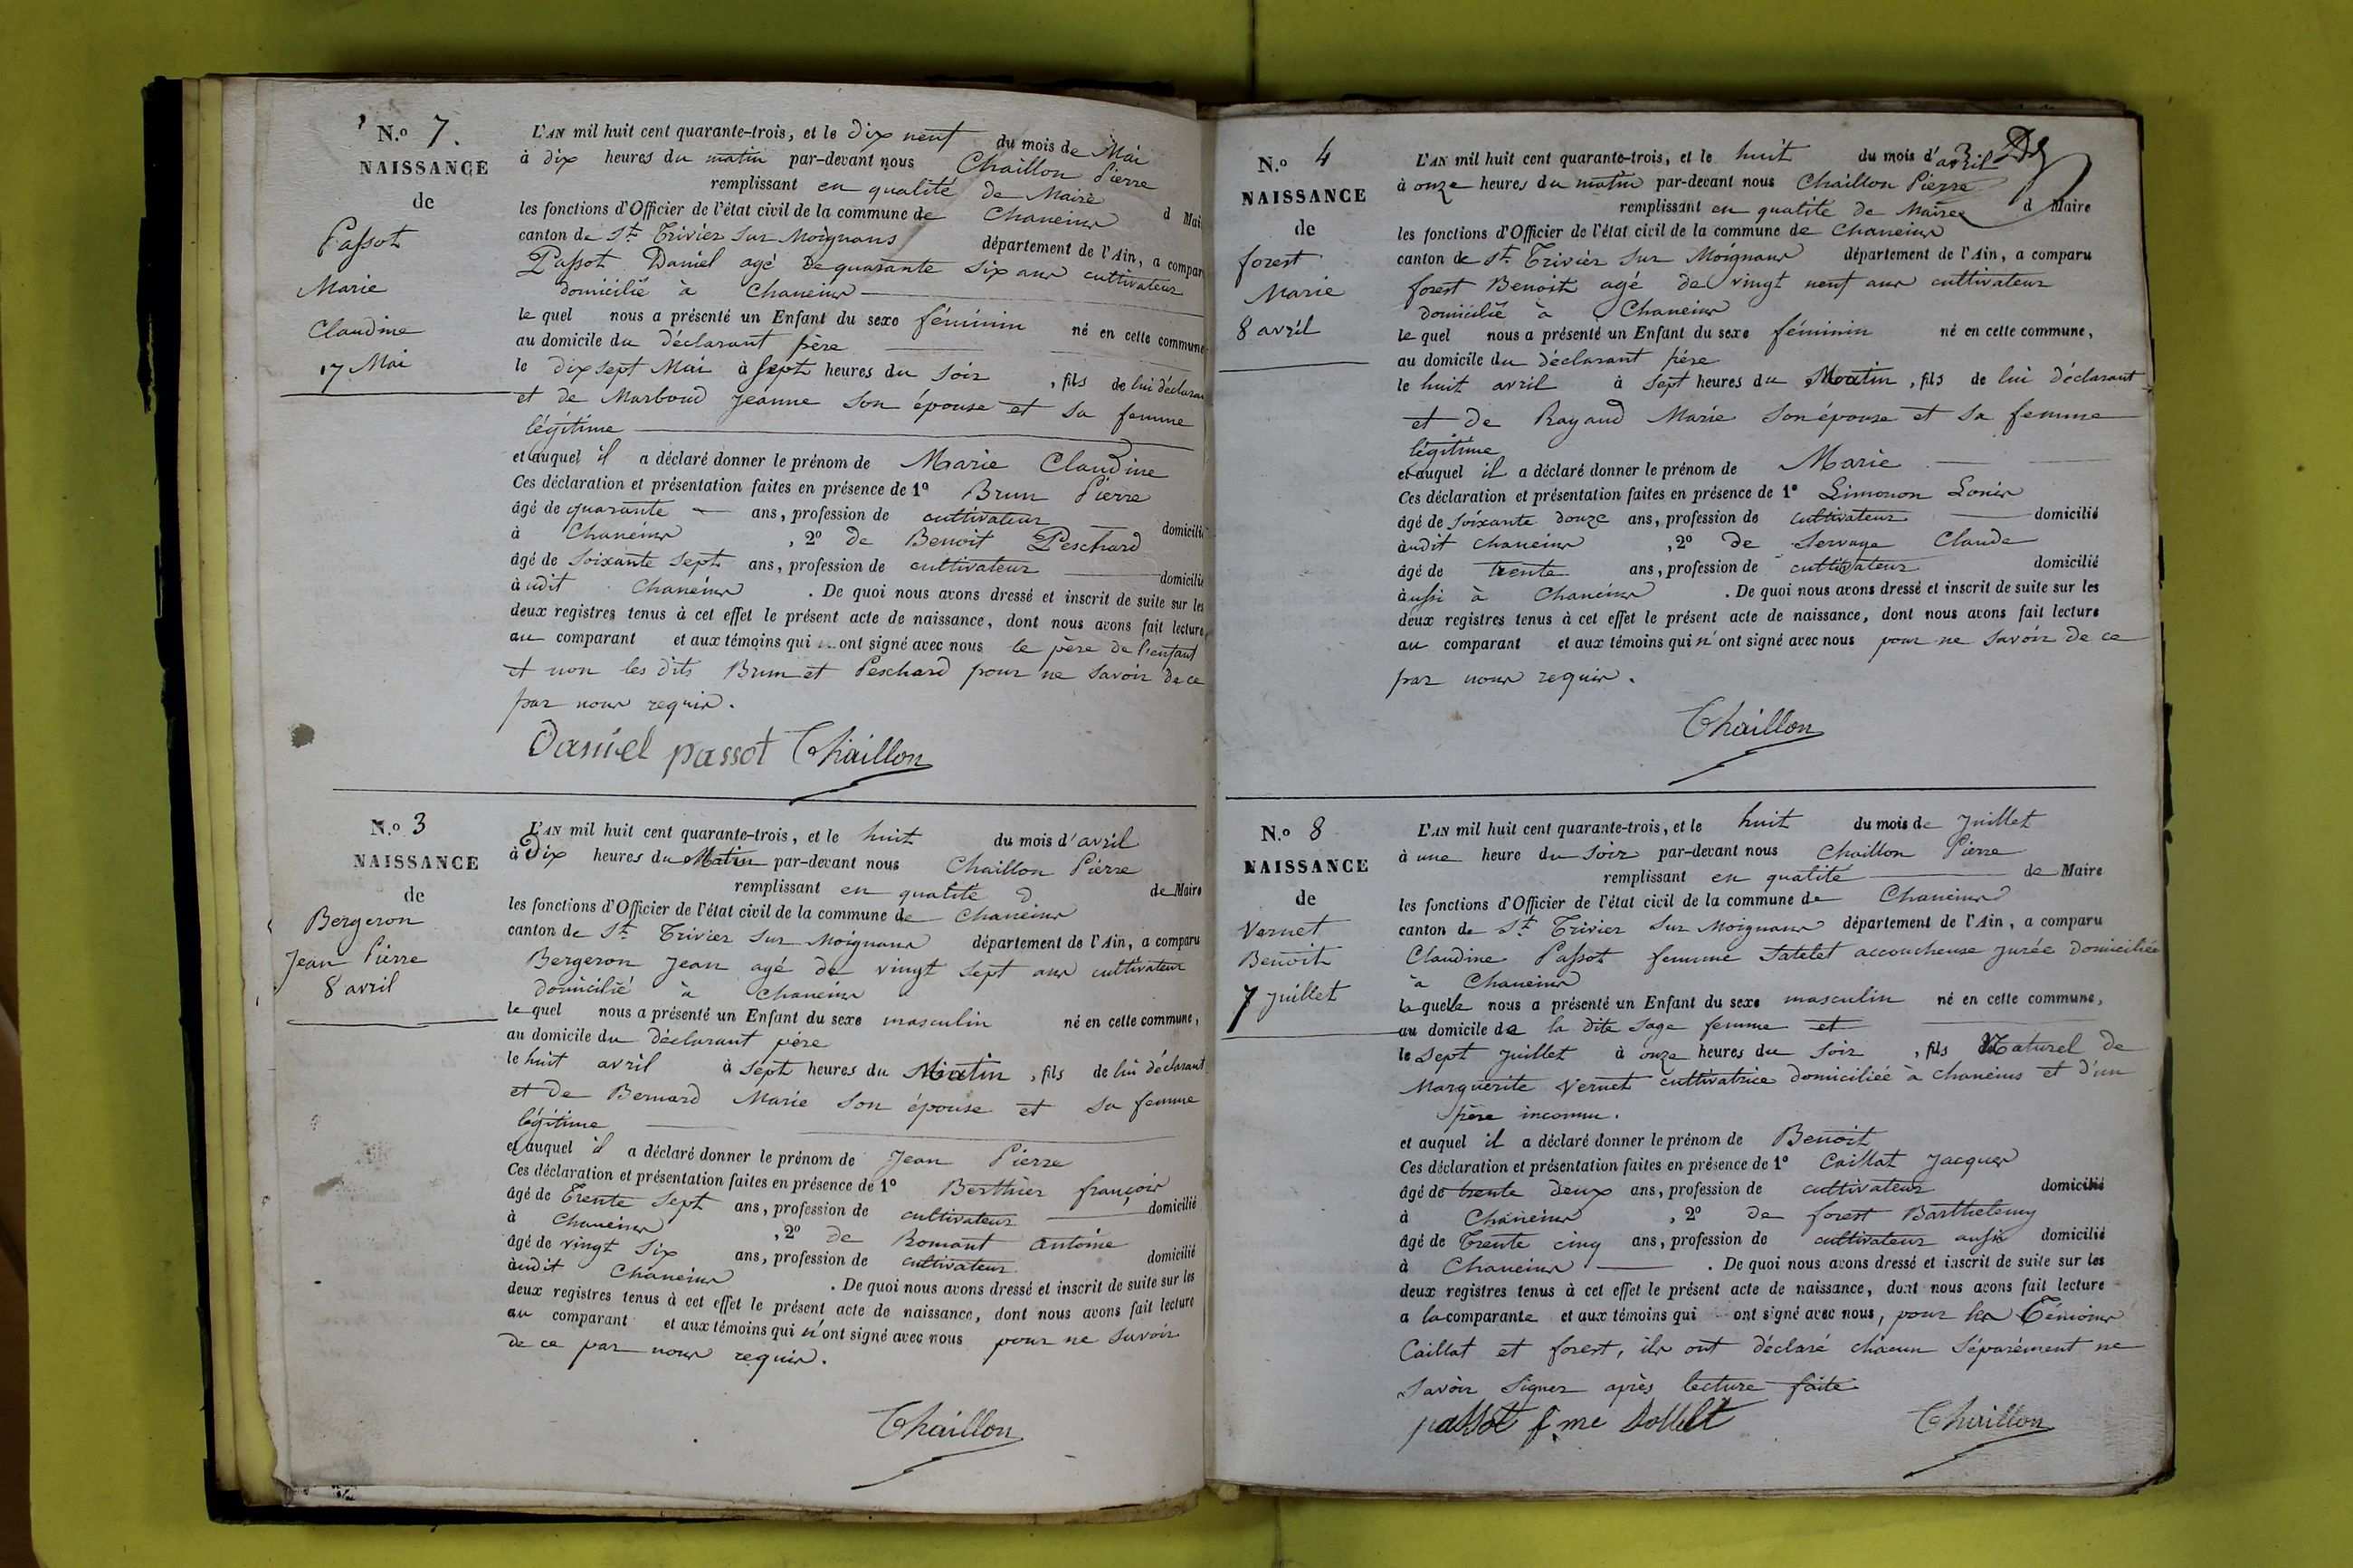 N.o 7.
NAISSANCE
de
Passot
Marie
Claudine
17 Mai
L'AN mil huit cent quarante-trois, et le dix neuf du mois de Mai
à dix heures du matin par-devant nous Chaillon Pierre
remplissant en qualité de Maire d Mai
les fonctions d'Officier de l'état civil de la commune de Chaneins
canton de St. Trivier sur Moignans département de l'Ain, a compar
Passot Daniel agé de quarante six ans cultivateur
domicilié à Chaneins
le quel nous a présenté un Enfant du sexe féminin né en cette commune
au domicile du déclarant père
le dix sept Mai à sept heures du soir, fils de lui déclaran
et de Marboud Jeanne son épouse et sa femme
légitime
et auquel il a déclaré donner le prénom de Marie Claudine
Ces déclaration et présentation faites en présence de 1o Brun Pierre
âgé de quarante ans, profession de cultivateur domicilié
à Chaneins, 2o de Benoit Peschard
âgé de soixante sept ans, profession de cultivateur domicilié
àudit Chaneins. De quoi nous avons dressé et inscrit de suite sur les
deux registres tenus à cet effet le présent acte de naissance, dont nous avons fait lecture
au comparant et aux témoins qui ont signé avec nous le père de l'enfant
et non les dits Brun et Peschard pour ne savoir de ce
par nous requis.
Daniel passot Chaillon
N.o 3
NAISSANCE
de
Bergeron
Jean Pierre
8 avril
L'AN mil huit cent quarante-trois, et le huit du mois d'avril
à Dix heures du Matin par-devant nous Chaillon Pierre
remplissant en qualité d de Maire
les fonctions d'Officier de l'état civil de la commune de Chaneins
canton de St. Trivier sur Moignans département de l'Ain, a comparu
Bergeron Jean agé de vingt sept ans cultivateur
domicilié à Chaneins
le quel nous a présenté un Enfant du sexe masculin né en cette commune,
au domicile du déclarant père
le huit avril à sept heures du Matin, fils de lui déclarant
et de Bernard Marie son épouse et sa femme
légitime
et auquel il a déclaré donner le prénom de Jean Pierre
Ces déclaration et présentation faites en présence de 1o Berthier françois
âgé de Trente sept ans, profession de cultivateur domicilié
à Chaneins, 2o de Romant Antoine
âgé de vingt six ans, profession de cultivateur domicilié
àudit Chaneins. De quoi nous avons dressé et inscrit de suite sur les
deux registres tenus à cet effet le présent acte de naissance, dont nous avons fait lecture
au comparant et aux témoins qui n'ont signé avec nous pour ne savoir
de ce par nous requis.
Chaillon
N.o 4
NAISSANCE
de
forest
Marie
8 avril
L'AN mil huit cent quarante-trois, et le huit du mois d'avril
à onze heures du matin par-devant nous Chaillon Pierre
remplissant en qualité de Maire d Maire
les fonctions d'Officier de l'état civil de la commune de Chaneins
canton de St. Trivier sur Moignans département de l'Ain, a comparu
forest Benoit agé de vingt neuf ans cultivateur
domicilié à Chaneins
le quel nous a présenté un Enfant du sexe féminin né en cette commune,
au domicile du déclarant père
le huit avril à sept heures du Matin, fils de lui déclarant
et de Rayaud Marie son épouse et sa femme
légitime
et auquel il a déclaré donner le prénom de Marie
Ces déclaration et présentation faites en présence de 1o Limonon Louis
âgé de soixante douze ans, profession de cultivateur domicilié
àudit chaneins, 2o de Servage Claude
âgé de trente ans, profession de cultivateur domicilié
àussi à Chaneins. De quoi nous avons dressé et inscrit de suite sur les
deux registres tenus à cet effet le présent acte de naissance, dont nous avons fait lecture
au comparant et aux témoins qui n'ont signé avec nous pour ne savoir de ce
par nous requis.
Chaillon
N.o 8
NAISSANCE
de
Vernet
Benoit
7 Juillet
L'AN mil huit cent quarante-trois, et le huit du mois de Juillet
à une heure du soir par-devant nous Chaillon Pierre
remplissant en qualité de Maire
les fonctions d'Officier de l'état civil de la commune de Chaneins
canton de St. Trivier sur Moignans département de l'Ain, a comparu
Claudine Passot femme Satelet accoucheuse jurée domiciliée
à Chaneins
la quelle nous a présenté un Enfant du sexe masculin né en cette commune,
au domicile de la dite sage femme et
le sept Juillet à onze heures du soir, fils Naturel de
Marguerite Vernet cultivatrice domiciliée à chaneins et d'un
père inconnu.
et auquel il a déclaré donner le prénom de Benoit
Ces déclaration et présentation faites en présence de 1o Caillat Jacques
âgé de trente deux ans, profession de cultivateur domicilié
à Chaneins, 2o de forest Barthelemy
âgé de Trente cinq ans, profession de cultivateur aussi domicilié
à Chaneins. De quoi nous avons dressé et inscrit de suite sur les
deux registres tenus à cet effet le présent acte de naissance, dont nous avons fait lecture
a la comparante et aux témoins qui ont signé avec nous, pour les Témoins
Caillat et forest, ils ont déclaré chacun séparément ne
savoir signer après lecture faite
passot fme Chaillon